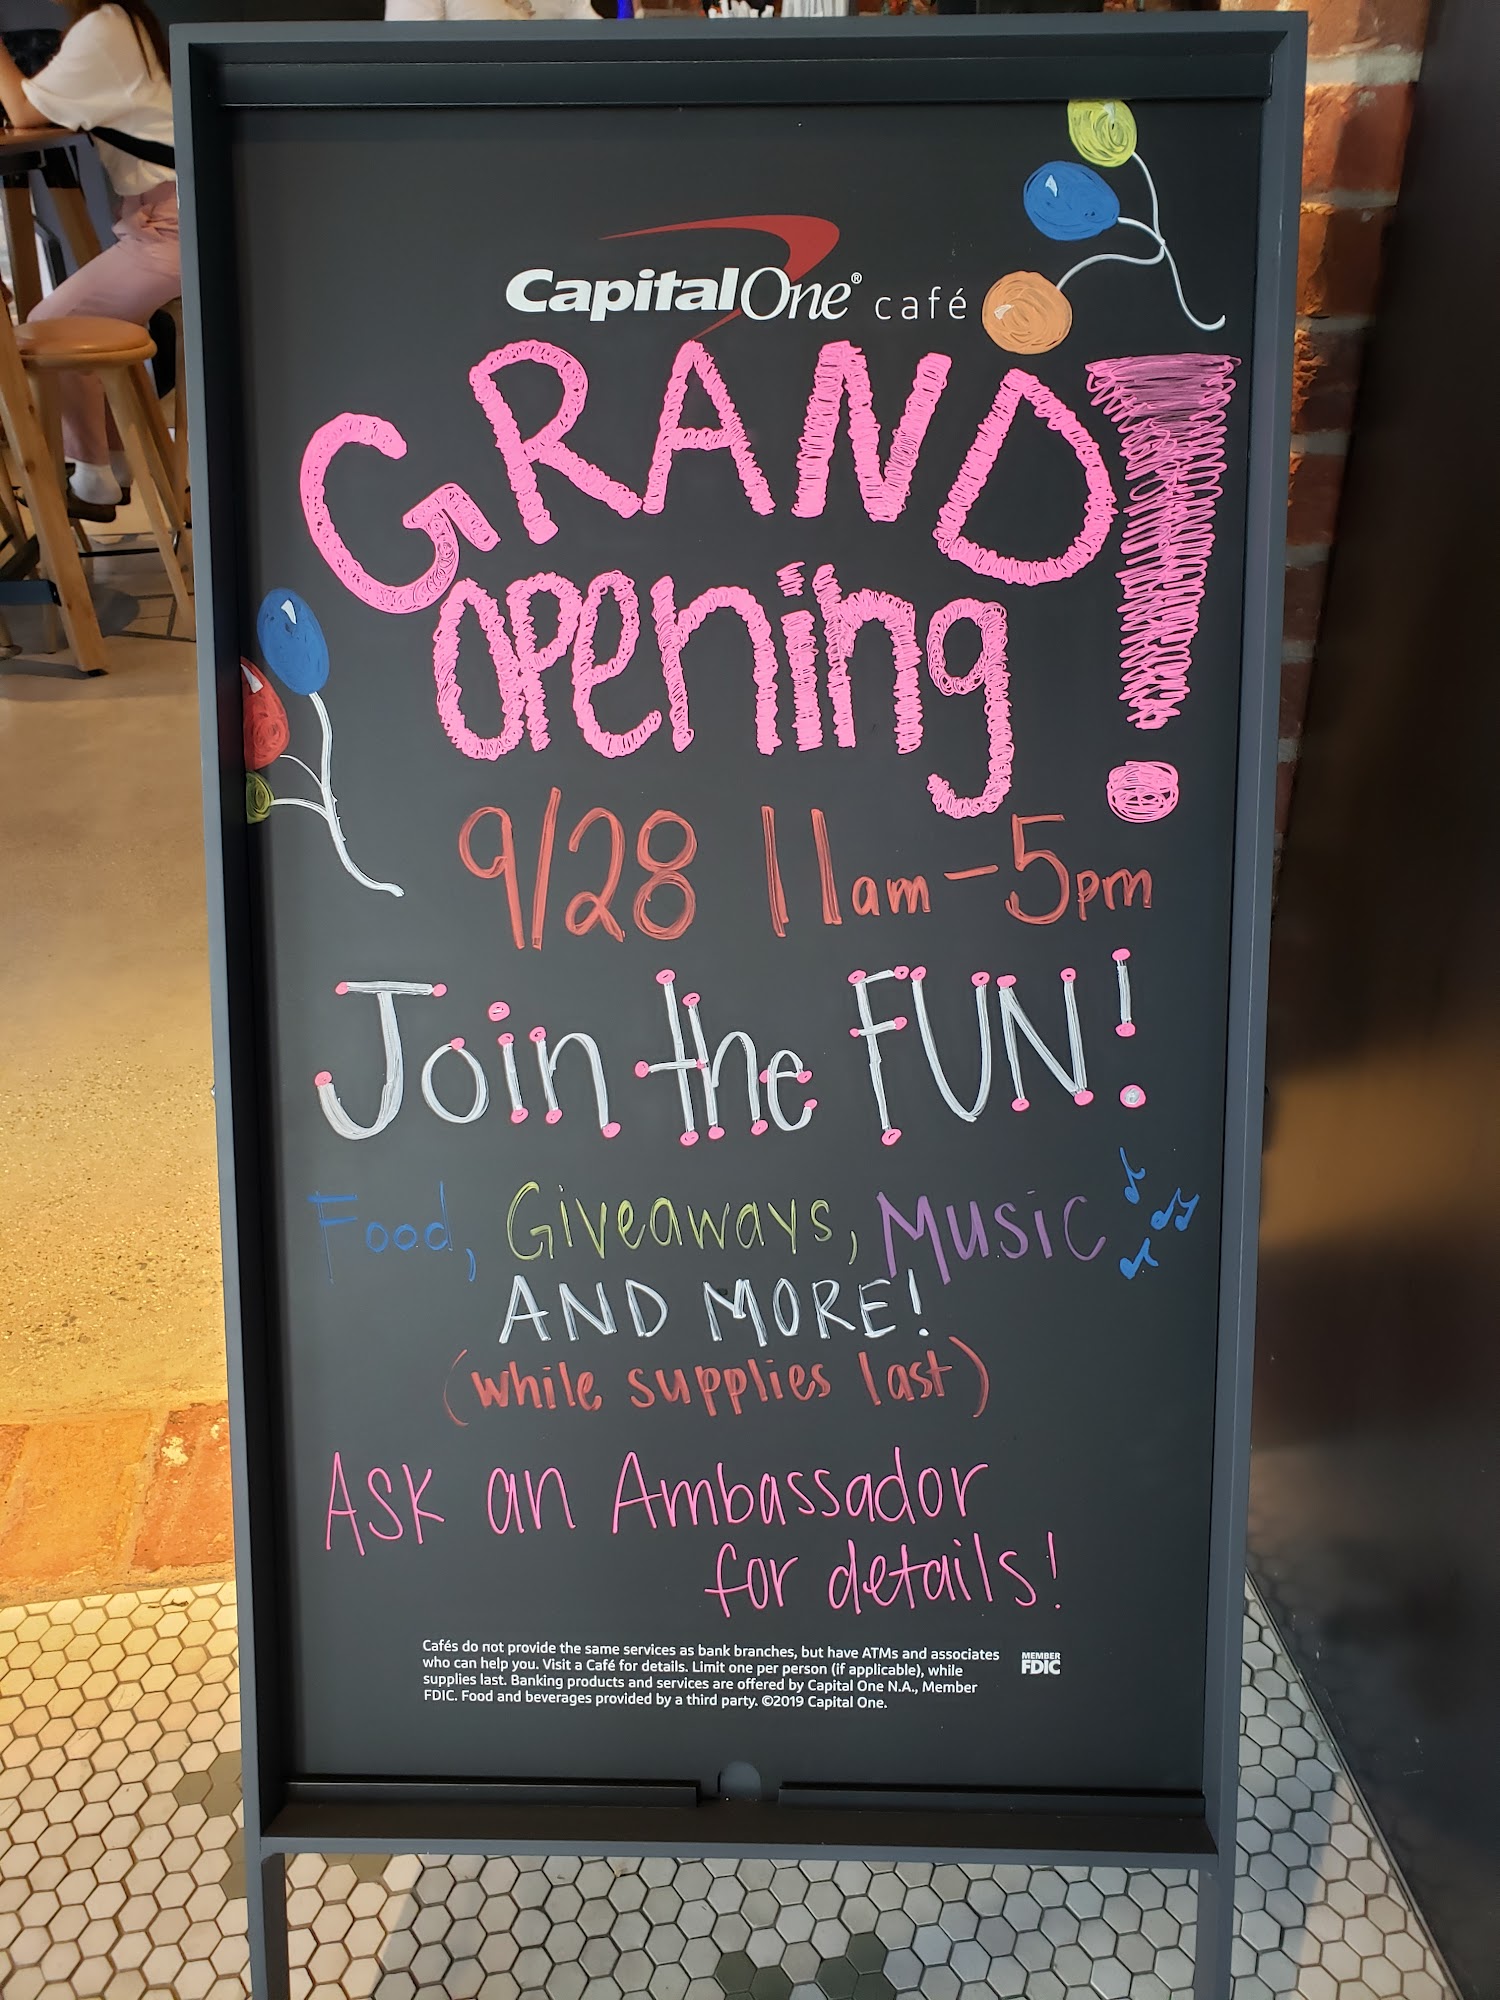 CapitalOne® café
GRAND
opening!
9/28 11am-5pm
Join the FUN!
Food, Giveaways, Music
AND MORE!
(while supplies last)
Ask an Ambassador
for details!
Cafés do not provide the same services as bank branches, but have ATMs and associates
who can help you. Visit a Café for details. Limit one per person (if applicable), while
supplies last. Banking products and services are offered by Capital One N.A., Member
FDIC. Food and beverages provided by a third party. ©2019 Capital One.
MEMBER
FDIC